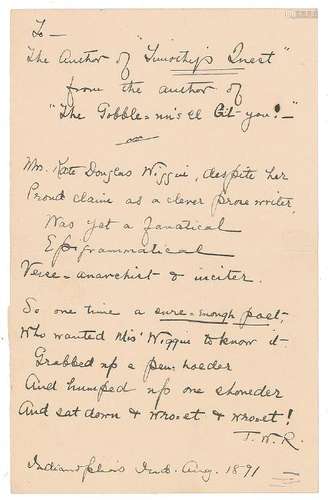 To—
The Author of "Timothy's Quest"
from the author of
"The Gobble-uns 'll Git you!"—
Mrs. Kate Douglas Wiggin, despite her
Proud claim as a clever prose writer,
Was yet a fanatical
Epigrammatical
Verse-anarchist & inciter.
So one time a sure-enough poet,
Who wanted Mis' Wiggin to know it
Grabbed up a pen-hoeder
And humped up one shoneder
And sat down & wro-et & wro-et!
J. W. R.
Indianapolis Ind. Aug. 1891